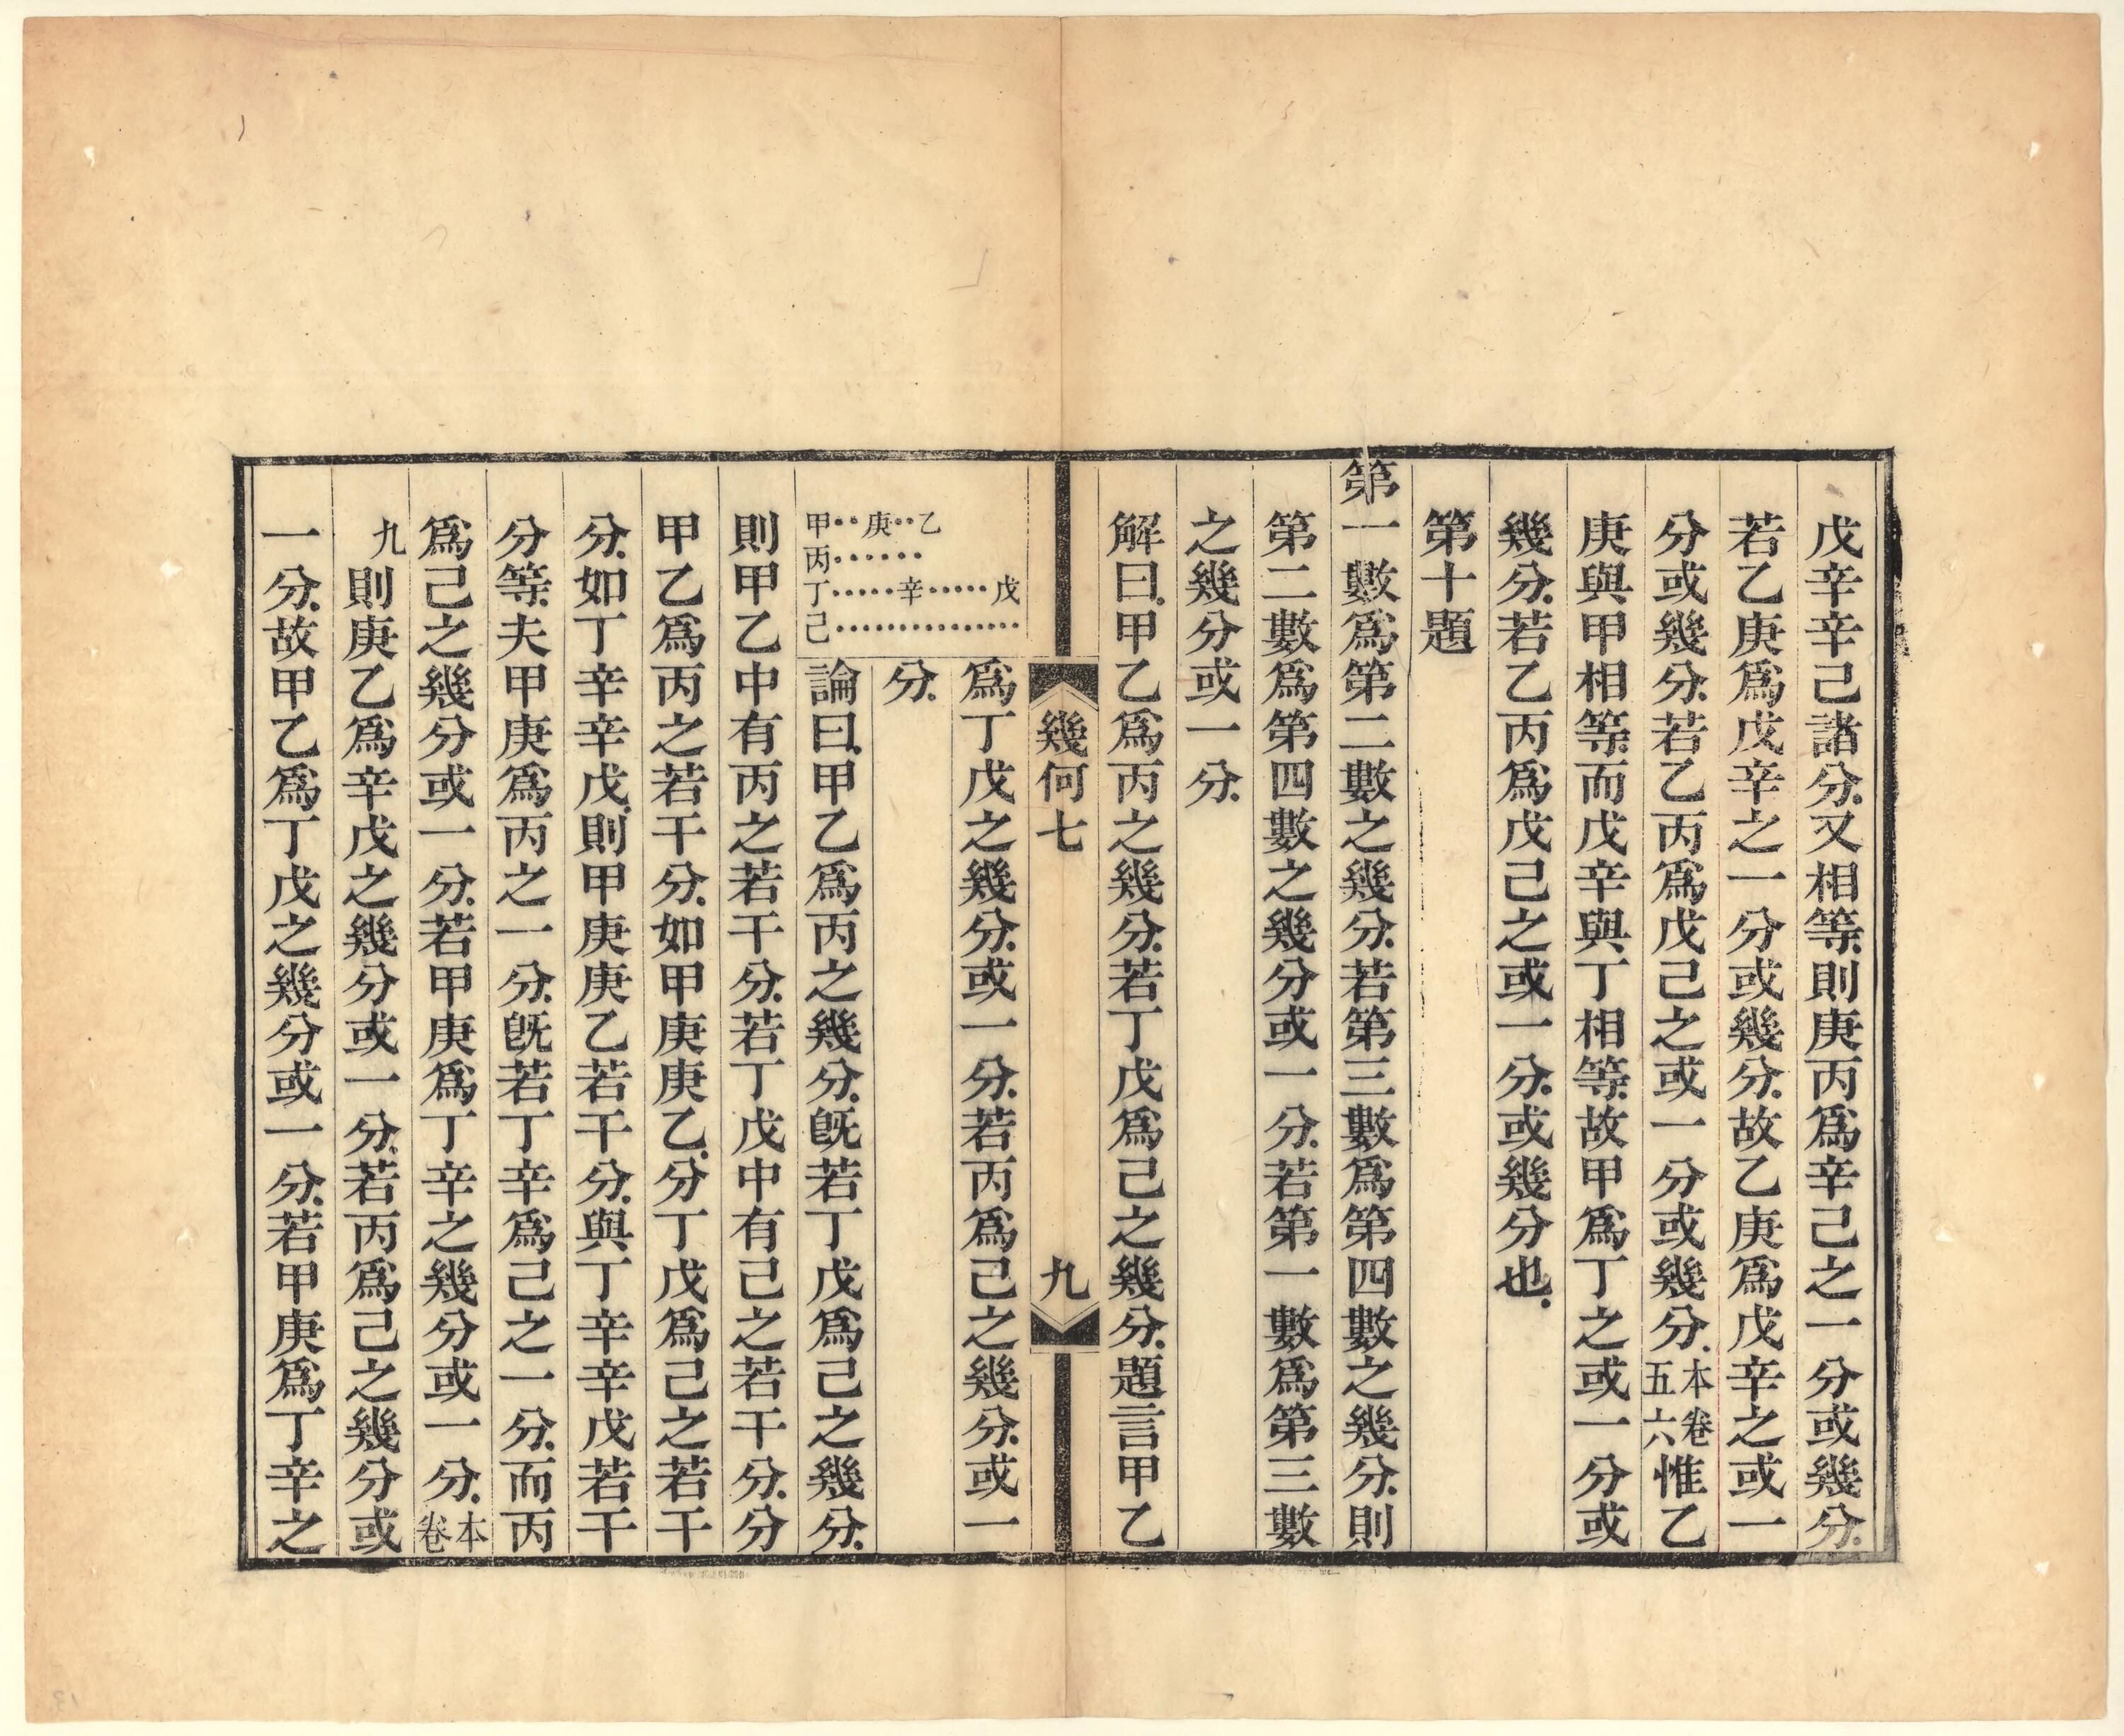 戊辛辛己諸分.又相等.則庚丙爲辛己之一分或幾分.
若乙庚爲戊辛之一分或幾分.故乙庚爲戊辛之或一
分或幾分.若乙丙爲戊己之或一分或幾分.本卷五六惟乙
庚與甲相等.而戊辛與丁相等.故甲爲丁之或一分或
幾分.若乙丙爲戊己之或一分.或幾分也.
第十題
第一數爲第二數之幾分.若第三數爲第四數之幾分.則
第二數爲第四數之幾分或一分.若第一數爲第三數
之幾分或一分.
解曰.甲乙爲丙之幾分.若丁戊爲己之幾分.題言甲乙
幾何七 九
爲丁戊之幾分.或一分.若丙爲己之幾分.或一
分.
甲••庚••乙
丙••••••
丁•••••辛•••••戊
己•••••••••••••••
論曰.甲乙爲丙之幾分.旣若丁戊爲己之幾分.
則甲乙中有丙之若干分.若丁戊中有己之若干分.分
甲乙爲丙之若干分.如甲庚庚乙.分丁戊爲己之若干
分.如丁辛辛戊.則甲庚庚乙若干分.與丁辛辛戊若干
分等.夫甲庚爲丙之一分.旣若丁辛爲己之一分.而丙
爲己之幾分或一分.若甲庚爲丁辛之幾分或一分.本卷
九則庚乙爲辛戊之幾分或一分.若丙爲己之幾分或
一分.故甲乙爲丁戊之幾分或一分.若甲庚爲丁辛之